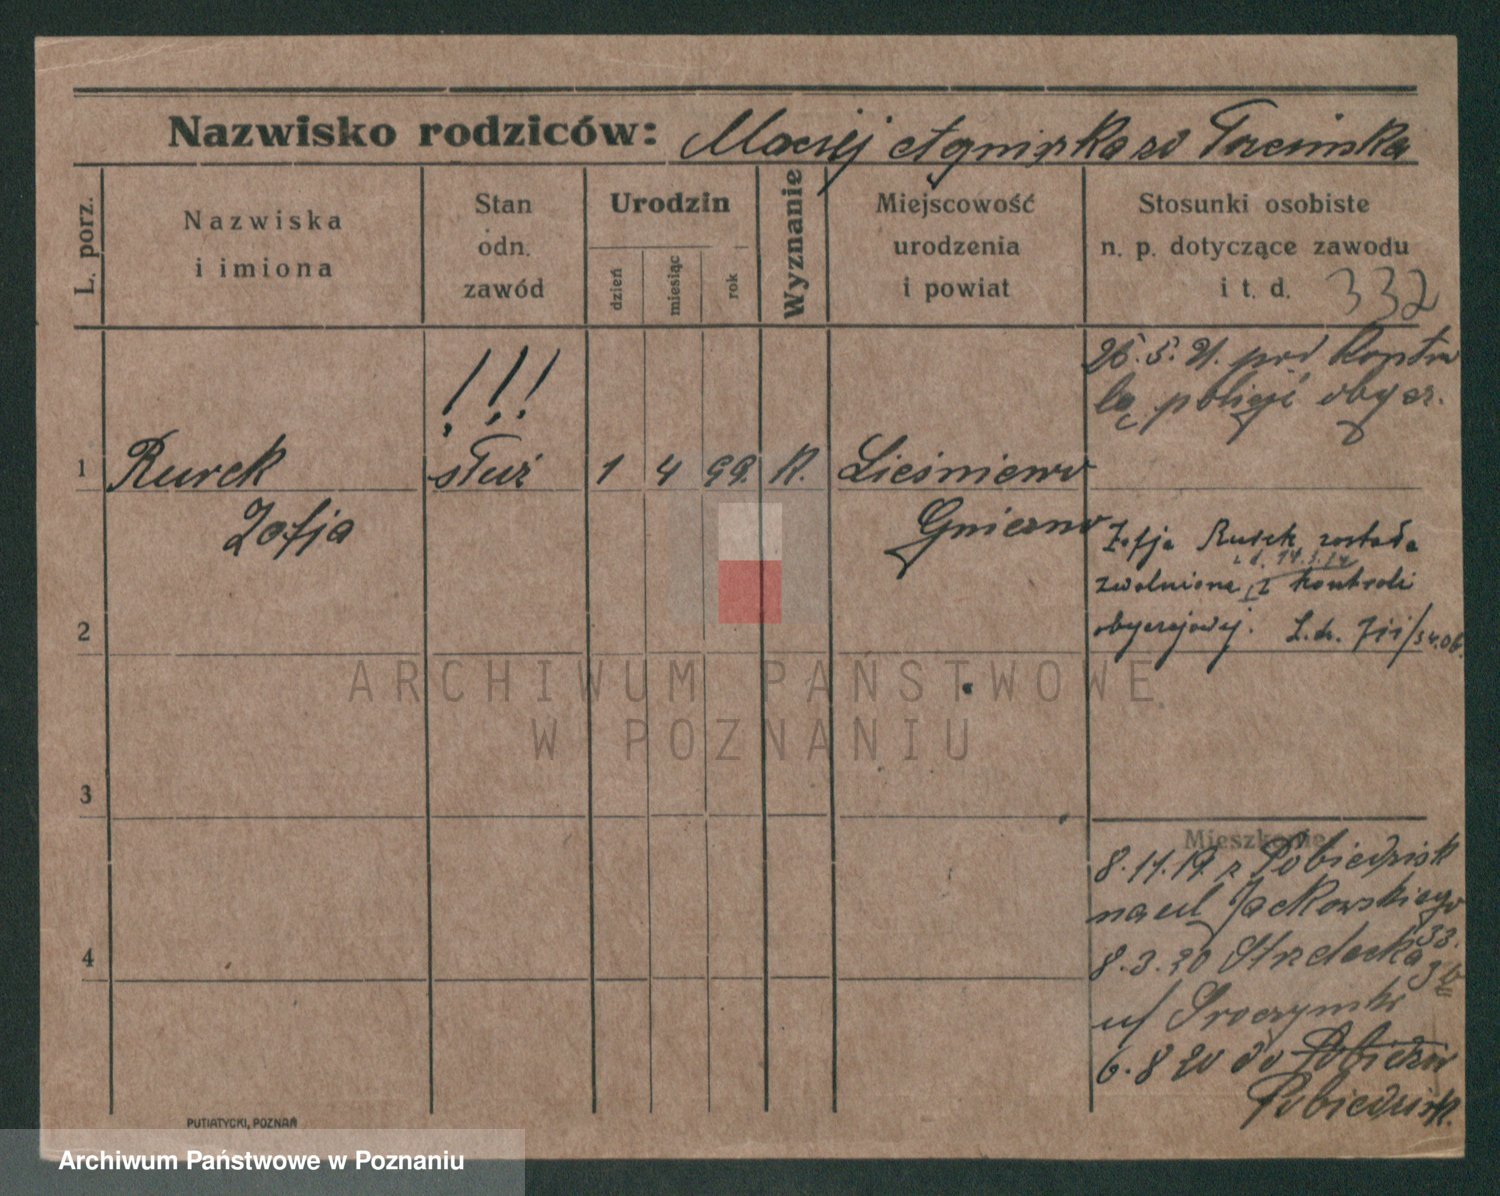 Nazwisko rodziców: Maciej Agnieszka
L. porz.
Nazwiska
i imiona
Stan
odn.
zawód
Urodzin
dzień
miesiąc
rok
Wyznanie
Miejscowość
urodzenia
i powiat
Stosunki osobiste
n. p. dotyczące zawodu
i t. d. 332
26.5.21. pod Kontro
lą policji obycz.
!!!
1 Rurek służ 1 4 99. K. Liesniewo
Zofja Gniezno
Zofja Rurek została
zwolniona z kontroli
obyczajowej. L.dz.
2
ARCHIWUM PAŃSTWOWE
W POZNANIU
3
Mieszkanie
8.11.19 z Pobiedzisk
na ul Jackowskiego
33.
8.3.20 Strzelecka
u/
4
6.8 20 do
Pobiedzisk.
PUTIATYCKI, POZNAŃ
Archiwum Państwowe w Poznaniu